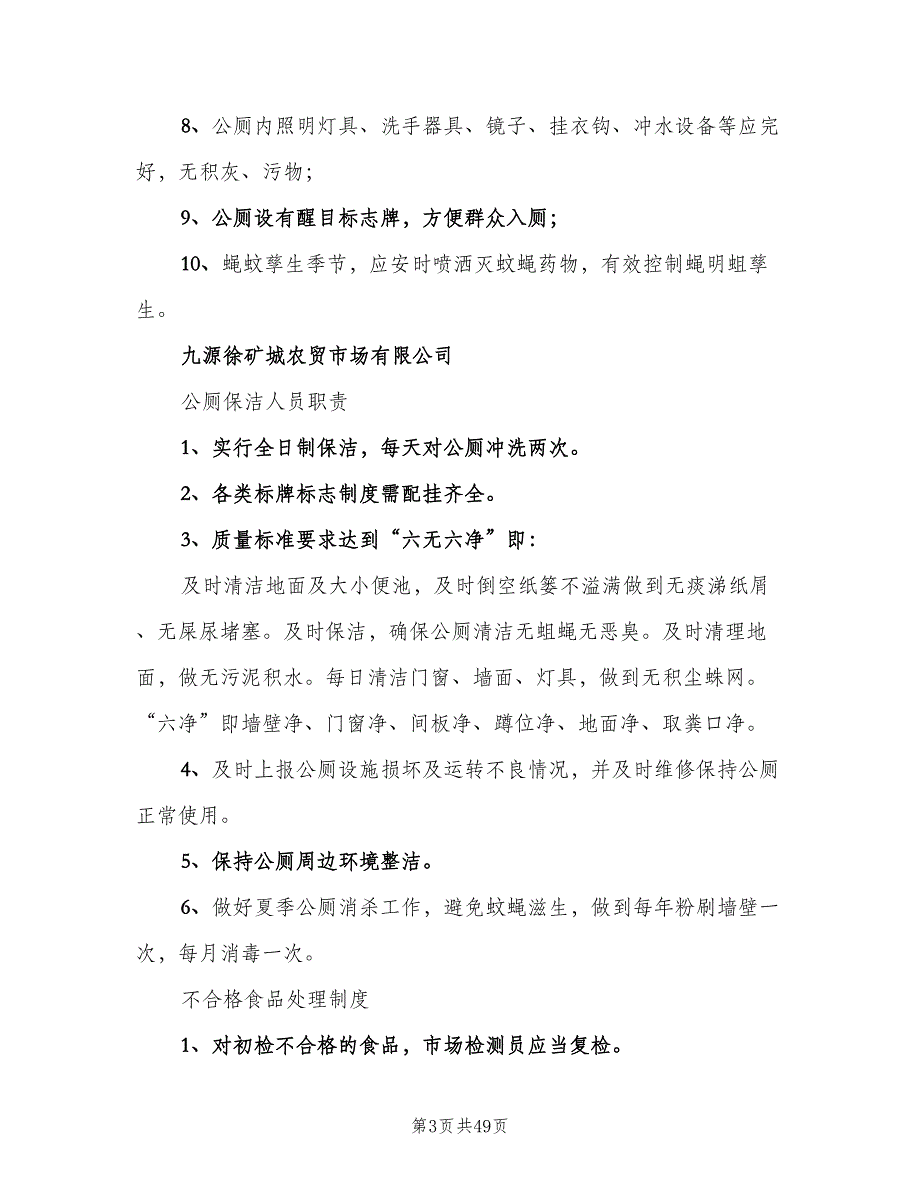 8、公厕内照明灯具、洗手器具、镜子、挂衣钩、冲水设备等应完
好，无积灰、污物；
9、公厕设有醒目标志牌，方便群众入厕；
10、蝇蚊孳生季节，应安时喷洒灭蚊蝇药物，有效控制蝇明蛆孳
生。
九源徐矿城农贸市场有限公司
公厕保洁人员职责
1、实行全日制保洁，每天对公厕冲洗两次。
2、各类标牌标志制度需配挂齐全。
3、质量标准要求达到“六无六净”即：
及时清洁地面及大小便池，及时倒空纸篓不溢满做到无痰涕纸屑
、无屎尿堵塞。及时保洁，确保公厕清洁无蛆蝇无恶臭。及时清理地
面，做无污泥积水。每日清洁门窗、墙面、灯具，做到无积尘蛛网。
“六净”即墙壁净、门窗净、间板净、蹲位净、地面净、取粪口净。
4、及时上报公厕设施损坏及运转不良情况，并及时维修保持公厕
正常使用。
5、保持公厕周边环境整洁。
6、做好夏季公厕消杀工作，避免蚊蝇滋生，做到每年粉刷墙壁一
次，每月消毒一次。
不合格食品处理制度
1、对初检不合格的食品，市场检测员应当复检。
第3页共49页